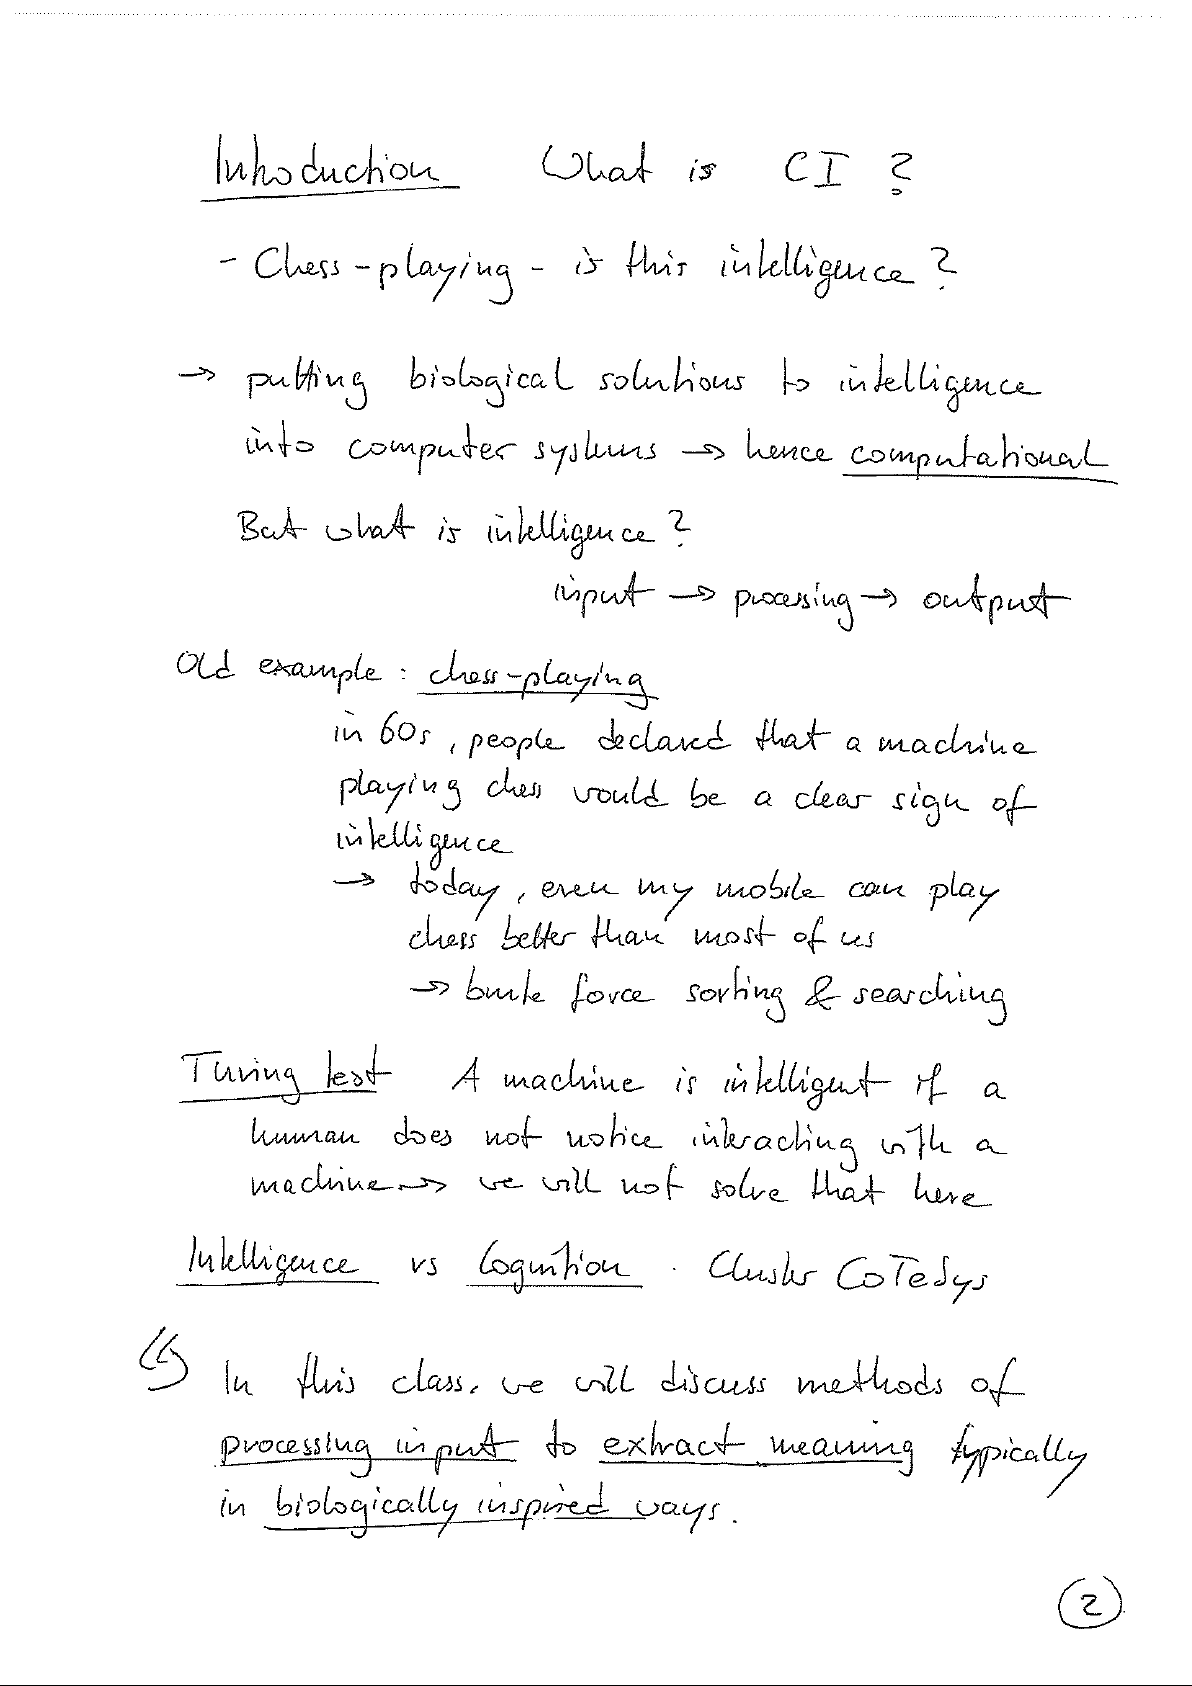 Introduction What is CI ?
- Chess-playing - is this intelligence ?
→ putting biological solutions to intelligence
into computer systems → hence computational
But what is intelligence ?
input → processing → output
Old example : chess-playing
in 60s, people declared that a machine
playing chess would be a clear sign of
intelligence
→ today, even my mobile can play
chess better than most of us
→ brute force sorting & searching
Turing test A machine is intelligent if a
human does not notice interacting with a
machine → we will not solve that here
Intelligence vs Cognition . Cluster CoTeSys
In this class, we will discuss methods of
processing input to extract meaning typically
in biologically inspired ways.
2